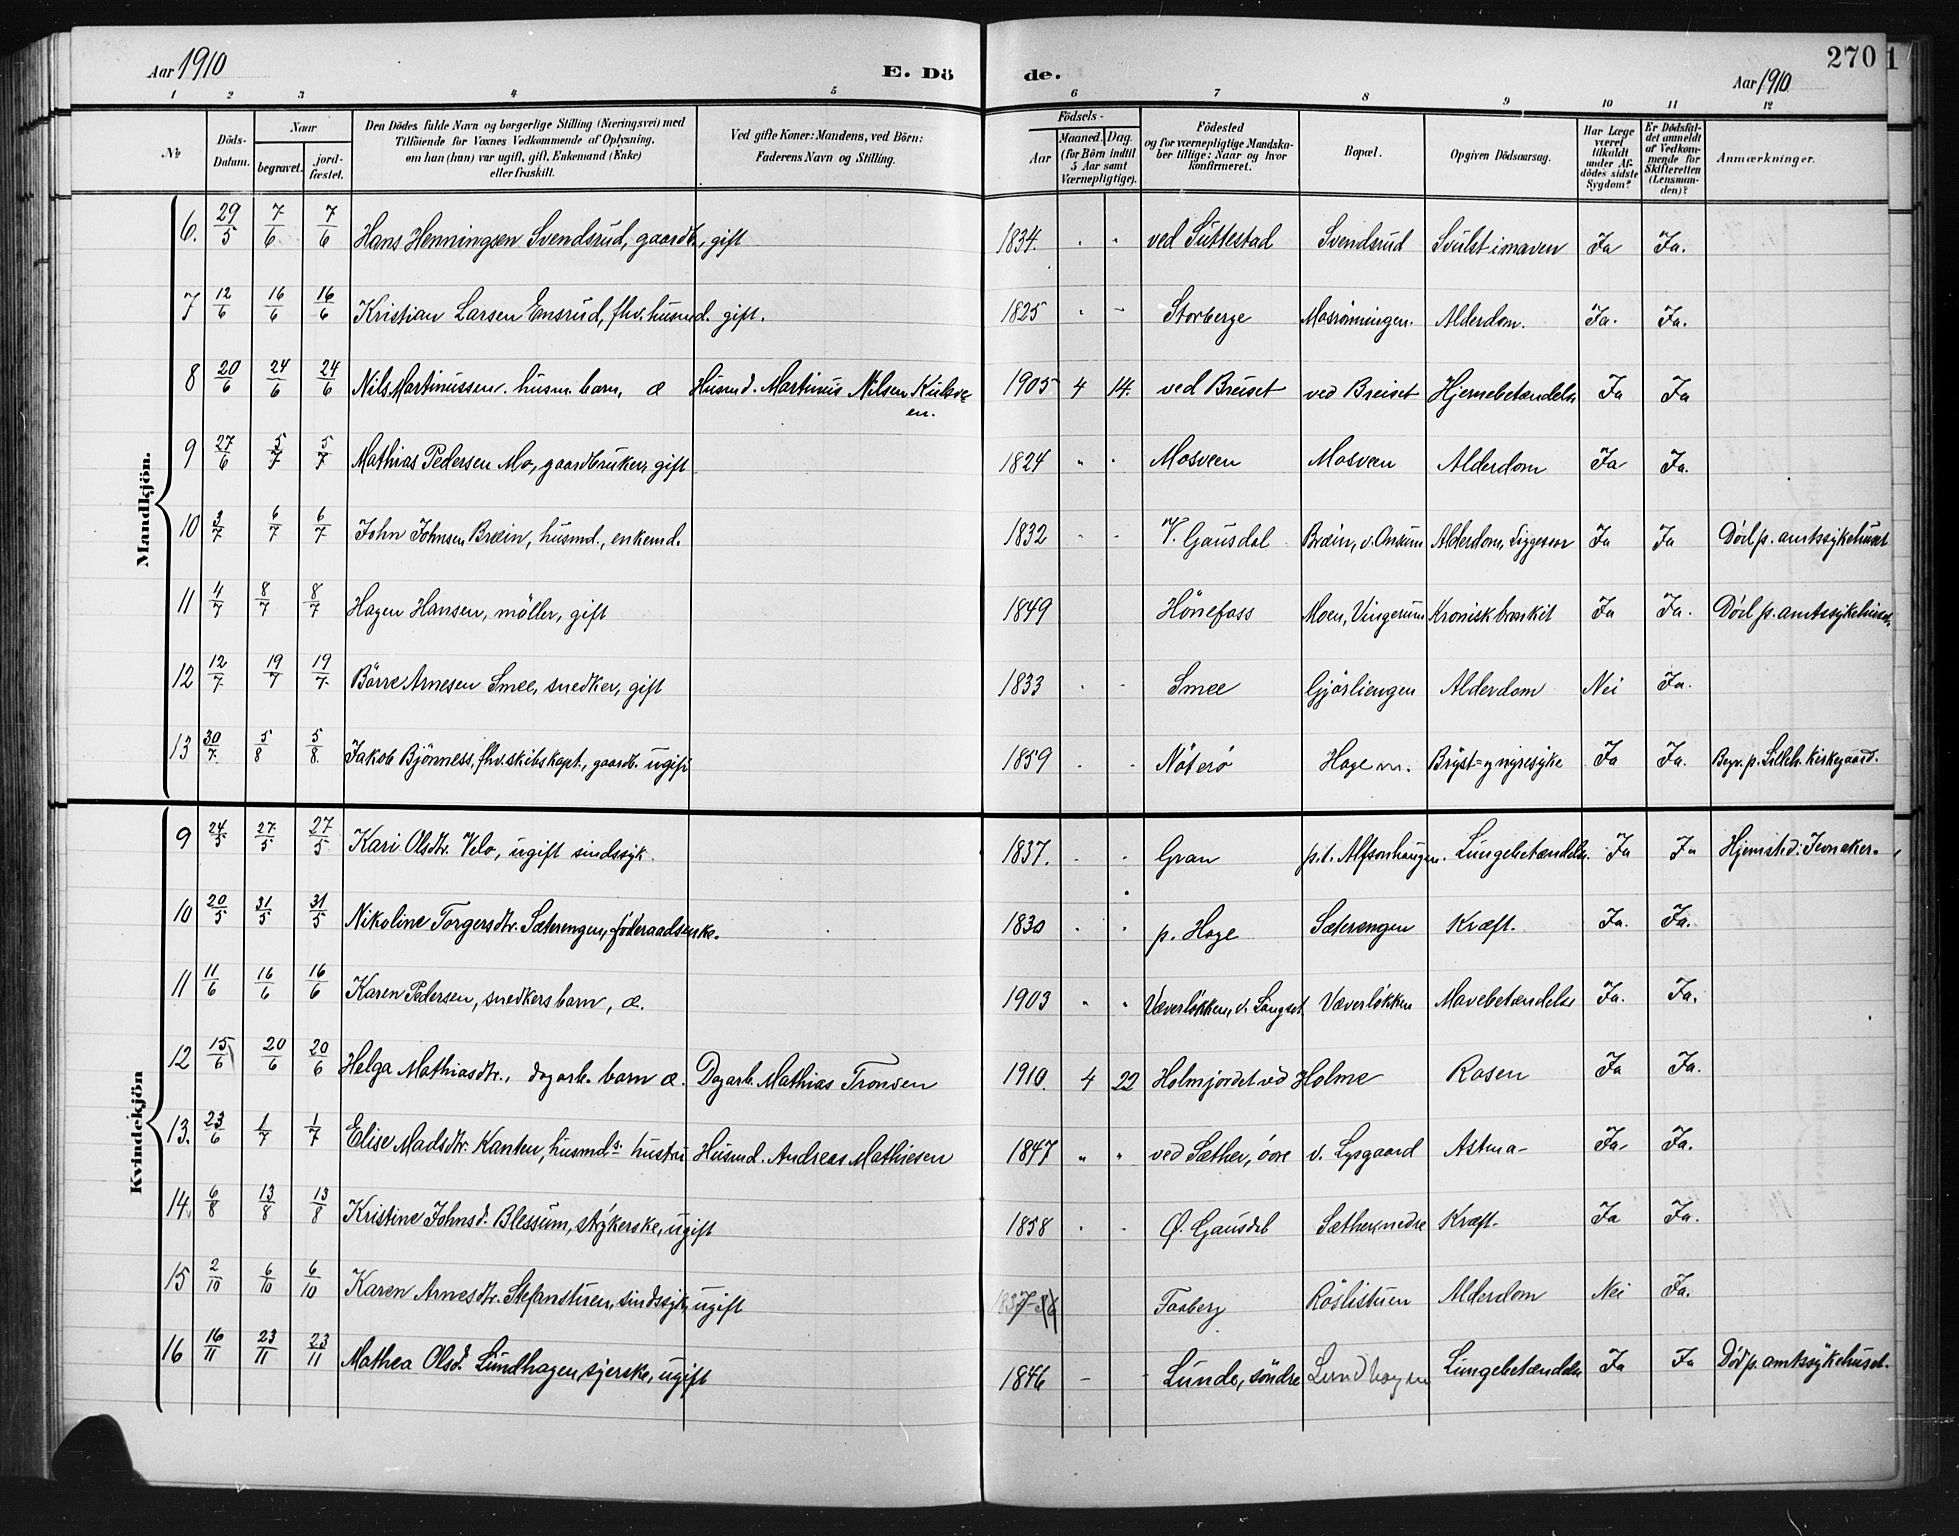 Aar 1910 E. Dö de. Aar 1910 270 1
1 2 3 4 5 6 7 8 9 10 11 12
No. Döds-Datum. Naar begravet. jord-fæstet. Den Dödes fulde Navn og borgerlige Stilling (Næringsvei) med Tilföiende for Voxnes Vedkommende af Oplysning, om han (hun) var ugift, gift, Enkemand (Enke) eller fraskilt. Ved gifte Koner: Mandens, ved Börn: Faderens Navn og Stilling. Födsels- Aar Maaned. Dag. (for Börn indtil 5 Aar samt Værnepligtige). Födested og for værnepligtige Mandskaber tillige: Naar og hvor konfirmeret. Bopæl. Opgiven Dödsaarsag. Har Læge været tilkaldt under Afdödes sidste Sygdom? Er Dödsfaldet anmeldt af Vedkommende for Skifteretten (Lensmanden)? Anmærkninger.
Mandkjön.
6. 29/5 7/6 7/6 Hans Henningsen Svendsrud, gaardb., gift 1834. " " ved Suttestad Svendsrud Svulst i maven Ja Ja.
7 12/6 16/6 16/6 Kristian Larsen Ensrud, fhv. husmd. gift. 1825 " - Storberge Mosrønningen. Alderdom. Ja. Ja.
8 20/6 24/6 24/6 Nils Martinussen. husm. barn, æ Husmd. Martinus Nilsen 1905 4 14. ved Breiset ved Breiset Hjernebetændelse Ja Ja
en.
9 27/6 5/7 5/7 Mathias Pedersen Mo, gaardbruker, gift 1824 " " Mosveen Mosveen Alderdom Ja Ja.
10 3/7 6/7 6/7 John Johnsen Bræin, husmd., enkemd. 1832 - - V. Gausdal Bræin, v. Onsum Alderdom, Liggesaar Ja Ja Död p. amtssykehuset
11 4/7 8/7 8/7 Hagen Hansen, möller, gift 1849 Hönefoss Moen, Vingerum Kronisk bronkit Ja Ja. Död p. amtssykehuset.
12 12/7 19/7 19/7 Börre Arnesen Smee, snedker, gift 1833 " - Smee Gjörliengen Alderdom Nei Ja.
13 30/7 5/8 5/8 Jakob Bjönness, fhv. skibskapt., gaardb. ugift 1859 . . Nöterö Hage Bryst- og nyresyke Ja Ja. Begr. p. Lilleh. Kirkegaard.
Kvindekjön
9 24/5 27/5 27/5 Kari Olsdtr. Velo, ugift sindssyk. 1837. . . Gran p.t. Alfsonhaugen. Lungebetændelse. Ja Ja Hjemsted: Jevnaker.
10 20/5 31/5 31/5 Nikoline Torgersdtr. Sæterengen, föderaadsenke. 1830 . . p. Hage Sæterengen Kræft. Ja. Ja.
11 11/6 16/6 16/6 Karen Pedersen, snedkers barn, æ. 1903 " " Væverløkken, v. Langset Væverløkken Mavebetændelse Ja. Ja.
12 15/6 20/6 20/6 Helga Mathiasdtr., dagarb. barn æ. Dagarb. Mathias Tronsen 1910. 4 22 Holmjordet ved Holme Rosen Ja Ja.
13. 23/6 1/7 1/7 Elise Madsdtr. Kanten, husmds. hustru Husmd. Andreas Mathiesen 1847 " " ved Sæther, övre v. Lysgaard Astma- Ja Ja.
14. 6/8 13/8 13/8 Kristine Johnsd. Blessum, strykerske, ugift 1858 . . Ö. Gausdal Sæther, nedre Kræft. Ja Ja.
15 2/10 6/10 6/10 Karen Arnesdtr. Stefanstuen, sindssyk, ugift 1837 Faaberg Röslistuen Alderdom Nei Ja.
16 16/11 23/11 23/11 Mathea Olsd. Lundhagen, sjerske, ugift 1846 - - Lunde, söndre Lundhagen Lungebetændelse Ja Ja Död p. amtssykehuset.